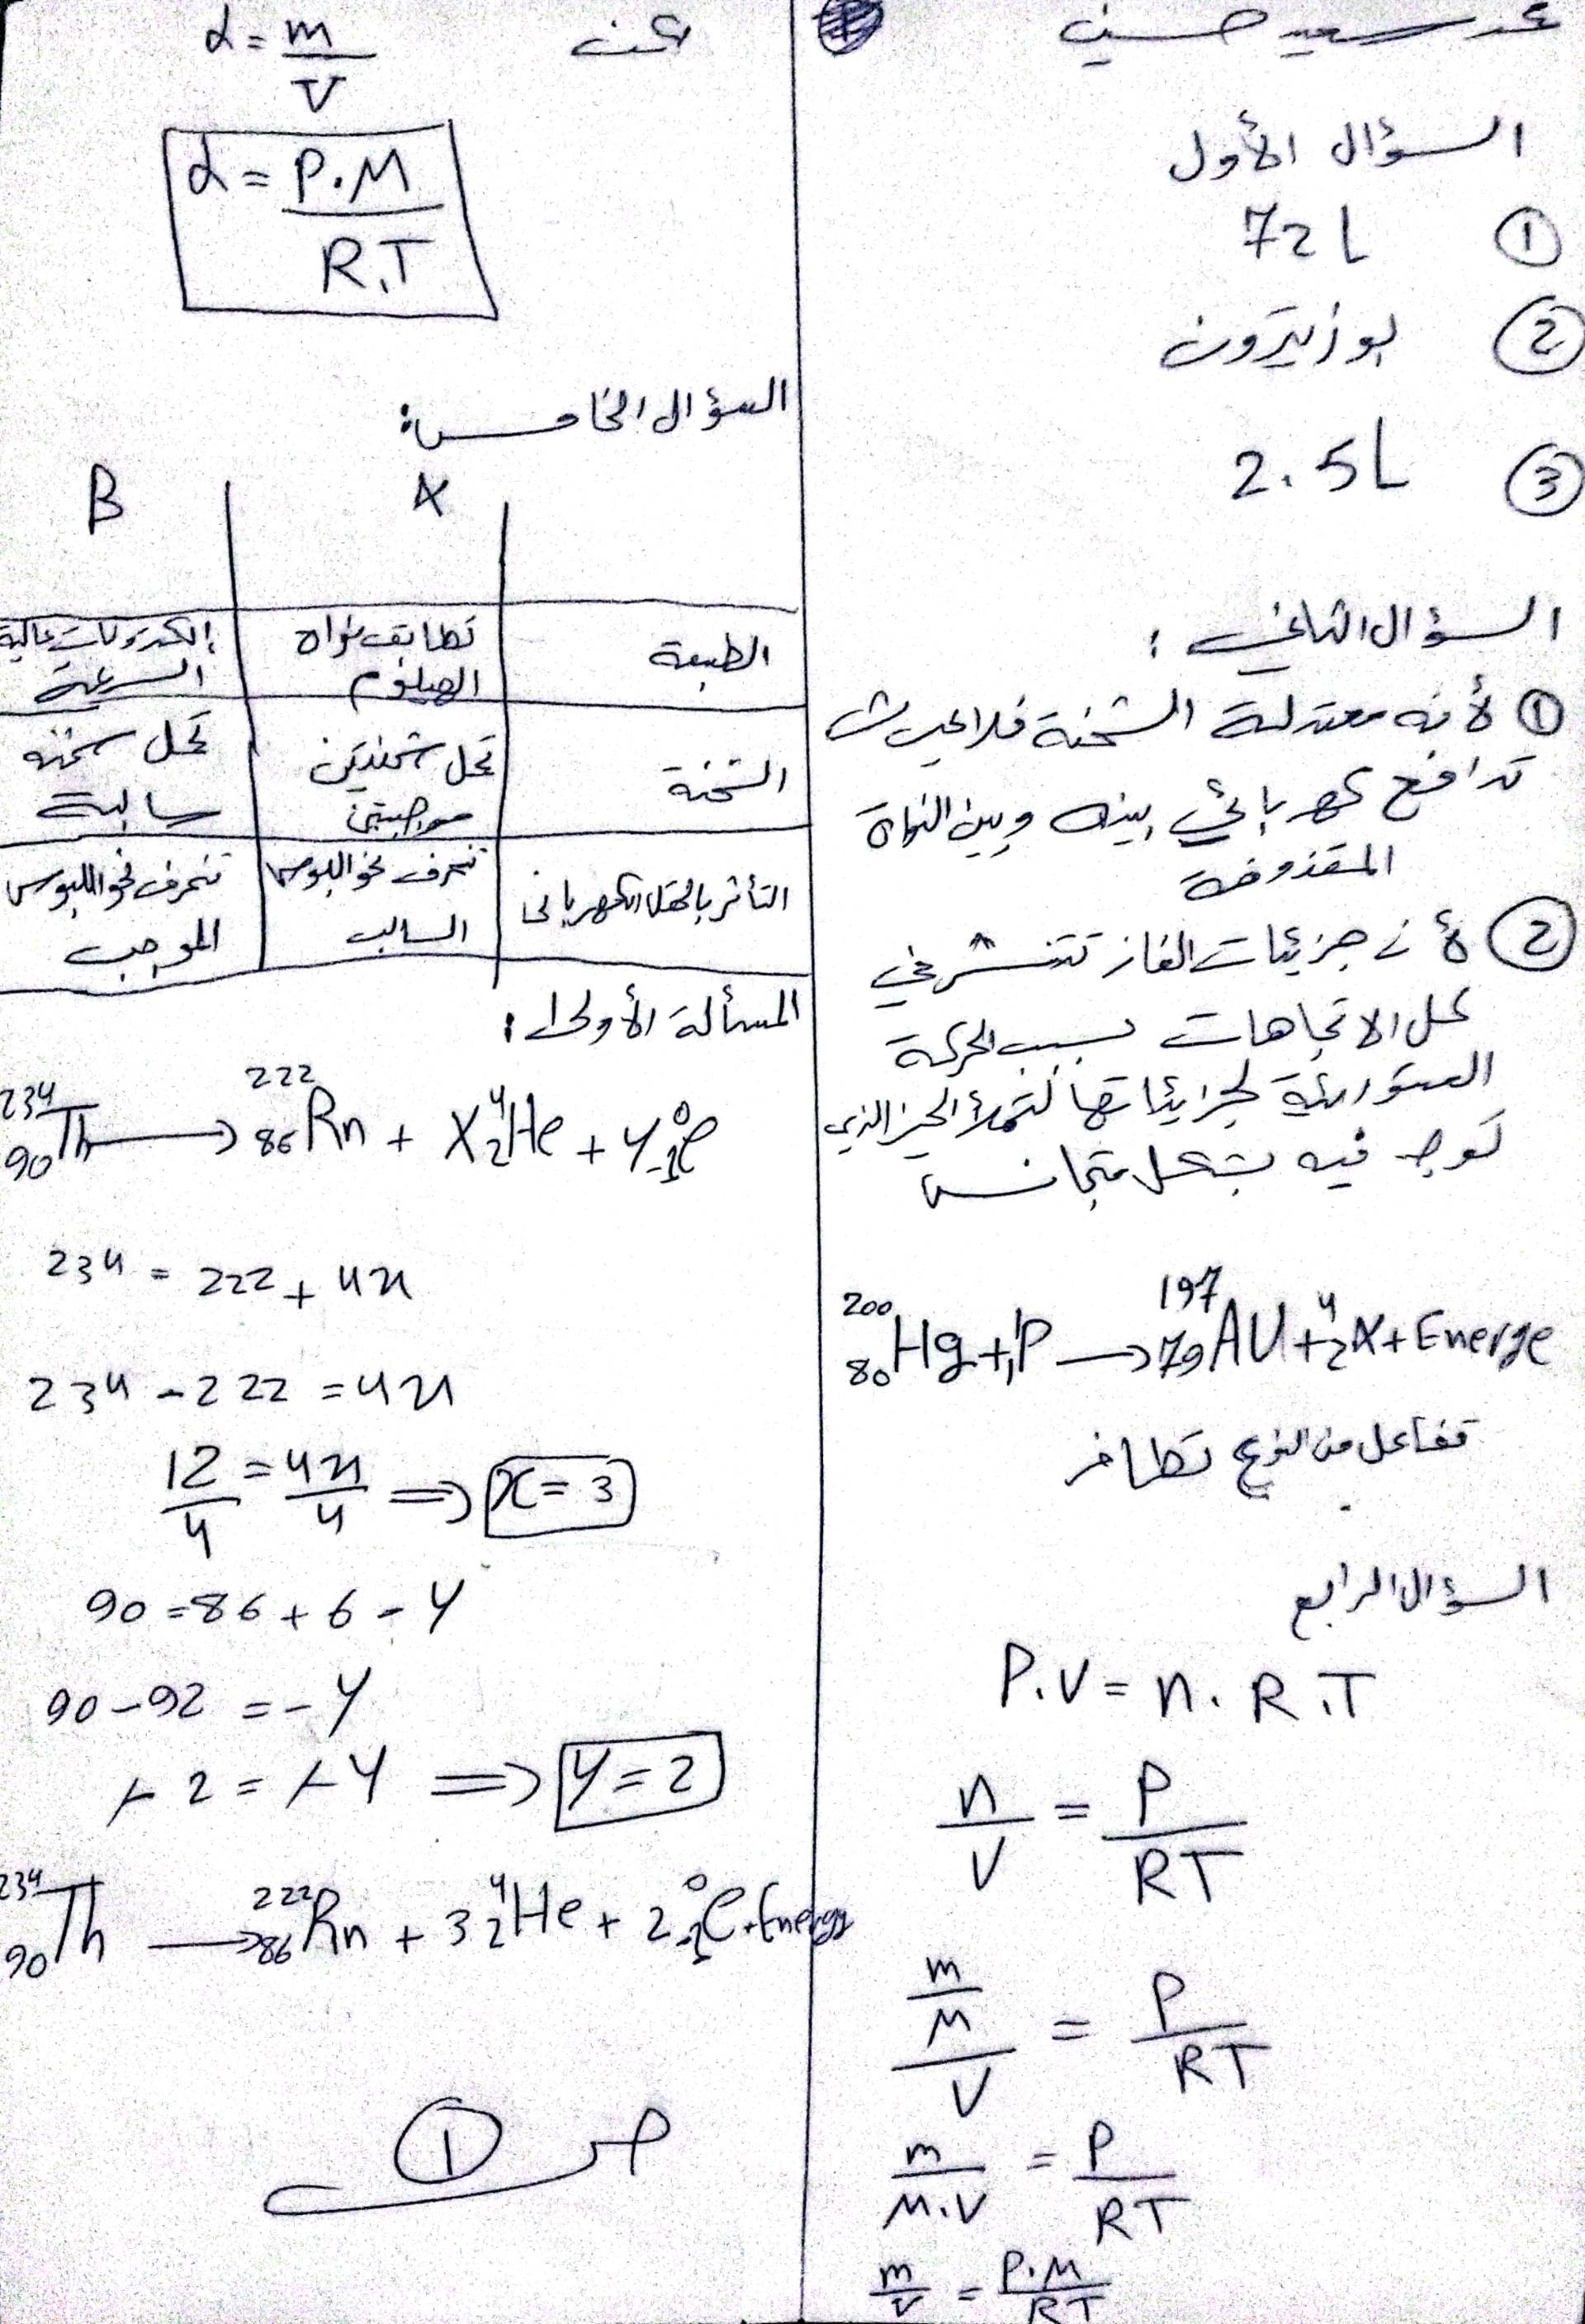 محمد سعيد حسين
السؤال الأول
① 72 L
② بوزيترون
③ 2.5 L
السؤال الثاني :
① لأنه معتدلة الشحنة فلا يحدث
تدافع كهربائي بينه وبين النواة
المقذوفة
② لأن جزيئات الغاز تنتشر في
كل الاتجاهات بسبب الحركة
العشوائية لجزيئاتها لتملأ الحيز الذي
توجد فيه بشكل متجانس
²⁰⁰₈₀Hg + ¹₁P → ¹⁹⁷₇₉AU + ⁴₂α + Energe
تفاعل من النوع تطافر
السؤال الرابع
P.V = n.R.T
n/V = P/RT
(m/M)/V = P/RT
m/M.V = P/RT
m/V = P.M/RT
d = m/V
d = P.M/R.T
السؤال الخامس:
α B
الطبيعة تطابق نواة الهيليوم إلكترونات عالية السرعة
الشحنة تحمل شحنتين موجبتين تحمل شحنه سالبة
التأثر بالحقل الكهربائي تنحرف نحو اللبوس السالب تنحرف نحو اللبوس الموجب
المسألة الأولى:
²³⁴₉₀Th → ²²²₈₆Rn + X ⁴₂He + y ⁰₋₁e
234 = 222 + 4x
234 - 222 = 4x
12/4 = 4x/4 ⇒ x = 3
90 = 86 + 6 - y
90 - 92 = - y
- 2 = - y ⇒ y = 2
²³⁴₉₀Th → ²²²₈₆Rn + 3 ⁴₂He + 2 ⁰₋₁e + Energy
ص ①